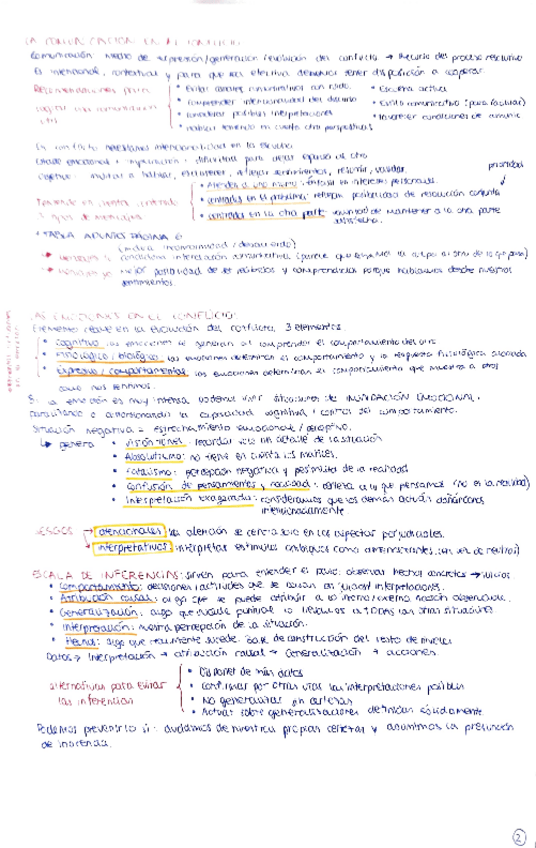 LA COMUNICACIÓN EN EL CONFLICTO
Comunicación: medio de expresión/generación/evolución del conflicto → Recurso del proceso resolutivo
Es intencional, contextual y para que sea efectiva debemos tener disposición a cooperar.
Recomendaciones para
• Evitar canales comunicativos con ruido.
• Escucha activa
• comprender intencionalidad del discurso
• Estilo comunicativo (para facilitar)
• considerar posibles interpretaciones
• favorecer condiciones de comunic
• hablar teniendo en cuenta otra perspectivas
En conflicto necesitamos intencionalidad en la escucha
Estado emocional + implicación = dificultad para dejar espacio al otro
objetivo: invitar a hablar, esclarecer, reflejar sentimientos, resumir, validar.
prioridad
• Atender a uno mismo: énfasis en intereses personales.
tener en cuenta, centrado
• centrados en la próxima: reflejan posibilidad de resolución conjunta
3 tipos de mensajes
• centrados en la otra parte: voluntad de mantener a la otra parte
satisfecha.
* TABLA APUNTES PÁGINA 6
condiciona interrelación comunicativa
→ Mensajes yo: mejor posibilidad de ser recibidos y comprendidos porque hablamos desde nuestros
sentimientos.
LAS EMOCIONES EN EL CONFLICTO:
Elemento clave en la evolución del conflicto, 3 elementos
• cognitivo: las emociones se generan al comprender el comportamiento del otro
• Fisiológico/biológico: las emociones determinan el comportamiento y la respuesta fisiológica asociada
• Expresivo/comportamental: las emociones determinan el comportamiento que muestra a otros
como nos sentimos.
Si la emoción es muy intensa podemos vivir situaciones de INUNDACIÓN EMOCIONAL,
capacidad cognitiva + control del comportamiento.
Situación negativa = estrechamiento emocional/perceptivo.
↳ genera
• Visión túnel: recordar solo un detalle de la situación
• Absolutismo: no tiene en cuenta los matices.
• Fatalismo: percepción negativa y pesimista de la realidad
• Confusión de pensamientos y realidad: refleja a lo que pensamos (no es la realidad)
• Interpretación exagerada: consideramos que los demás actúan dañándonos
intencionadamente
SESGOS
→ atencionales: la atención se centra solo en los aspectos perjudiciales.
→ interpretativos: interpretas estímulos ambiguos como amenazantes
ESCALA DE INFERENCIAS: sirven para entender el paso: observar hechos concretos → juicios
• Comportamiento: decisiones/actitudes que se basan en juicios/interpretaciones.
• Atribución causal: algo que se puede atribuir a lo interno/externo
• Generalización: algo que sucede puntual lo vinculas a TODAS las otras situaciones
• Interpretación: nuestra percepción de la situación.
• Hechos: algo que realmente sucede: base de construcción del resto de niveles
Datos → Interpretación → atribución causal → Generalización → acciones.
• Disponer de más datos
alternativas para evitar
• Confirmar por otras vías las interpretaciones posibles
las inferencias
• No generalizar sin certezas
• Actuar sobre generalizaciones definidas sólidamente
Podemos prevenirlo si: dudamos de nuestras propias certezas y asumimos la presunción
de inocencia.
2